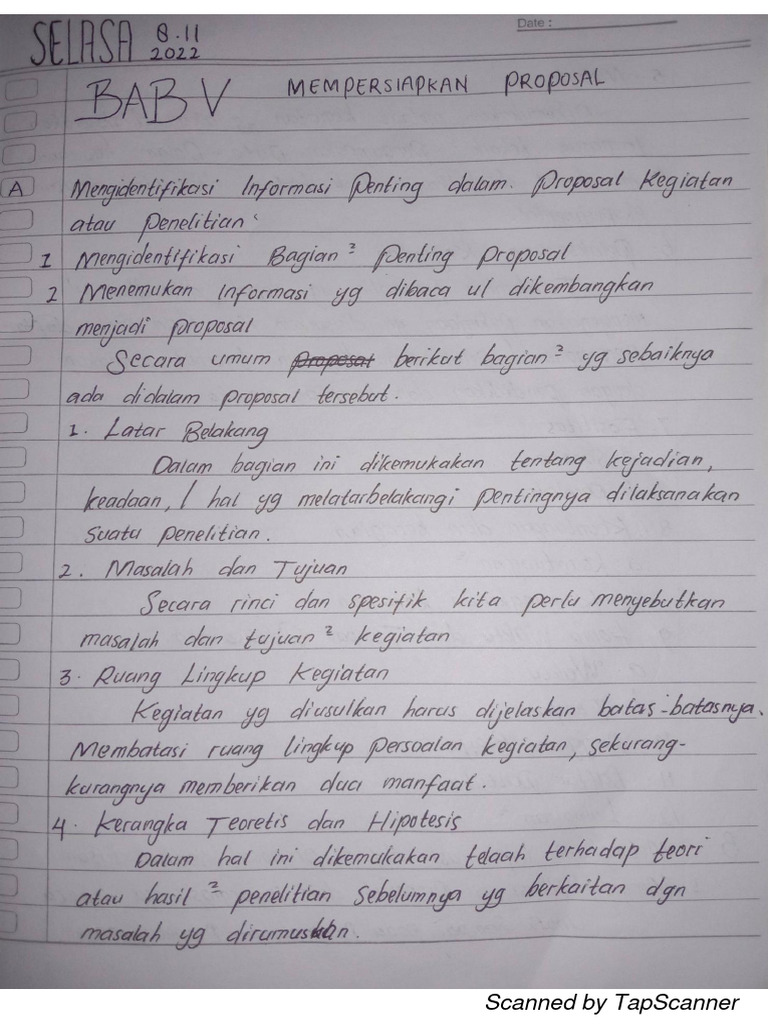 Date :
SELASA 8.11
2022
BAB V MEMPERSIAPKAN PROPOSAL
A Mengidentifikasi Informasi Penting dalam. Proposal Kegiatan
atau Penelitian
1 Mengidentifikasi Bagian ² Penting Proposal
2 Menemukan Informasi yg dibaca ul dikembangkan
menjadi proposal
Secara umum proposal berikut bagian ² yg sebaiknya
ada didalam proposal tersebut.
1. Latar Belakang
Dalam bagian ini dikemukakan tentang kejadian,
keadaan, / hal yg melatarbelakangi pentingnya dilaksanakan
suatu penelitian.
2. Masalah dan Tujuan
Secara rinci dan spesifik kita perlu menyebutkan
masalah dan tujuan ² kegiatan
3. Ruang Lingkup Kegiatan
Kegiatan yg diusulkan harus dijelaskan batas-batasnya.
Membatasi ruang lingkup persoalan kegiatan, sekurang-
kurangnya memberikan dua manfaat.
4. Kerangka Teoretis dan Hipotesis
Dalam hal ini dikemukakan telaah terhadap teori
atau hasil ² penelitian sebelumnya yg berkaitan dgn
masalah yg dirumuskan.
Scanned by TapScanner